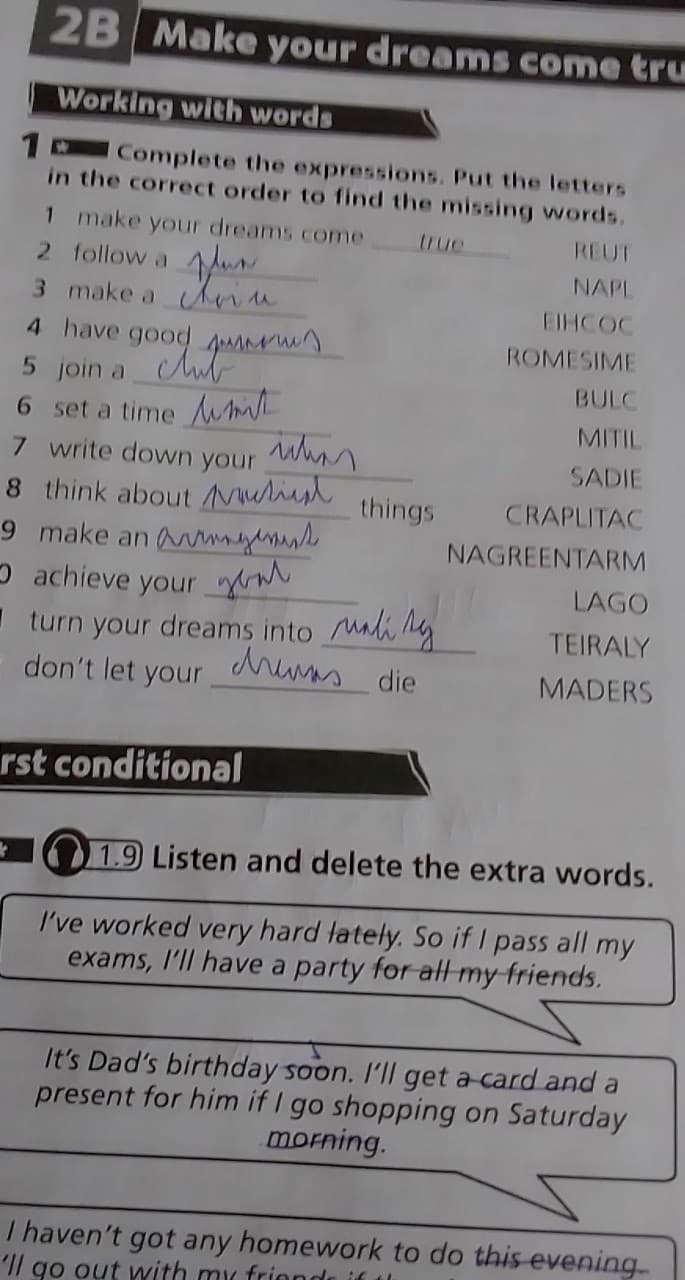 2B Make your dreams come tru
Working with words
1 * Complete the expressions. Put the letters
in the correct order to find the missing words.
1 make your dreams come true REUT
2 follow a plan NAPL
3 make a choice EIHCOC
4 have good memories ROMESIME
5 join a club BULC
6 set a time limit MITIL
7 write down your ideas SADIE
8 think about practical things CRAPLITAC
9 make an arrangement NAGREENTARM
0 achieve your goal LAGO
turn your dreams into reality TEIRALY
don't let your dreams die MADERS
rst conditional
1.9 Listen and delete the extra words.
I've worked very hard lately. So if I pass all my
exams, I'll have a party for all my friends.
It's Dad's birthday soon. I'll get a card and a
present for him if I go shopping on Saturday
morning.
I haven't got any homework to do this evening.
'll go out with my friends if